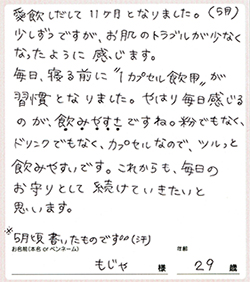 愛飲しだして11ヶ月となりました。(5月)
少しずつですが、お肌のトラブルが少なく
なったように感じます。
毎日、寝る前に〝1カプセル飲用〟が
習慣となりました。やはり毎日感じる
のが、飲みやすさですね。粉でもなく、
ドリンクでもなく、カプセルなので、ツルっと
飲みやすいです。これからも、毎日の
お守りとして続けていきたいと
思います。
※5月頃書いたものです。。(汗)
お名前(本名 or ペンネーム) 年齢
もじゃ 様 29 歳